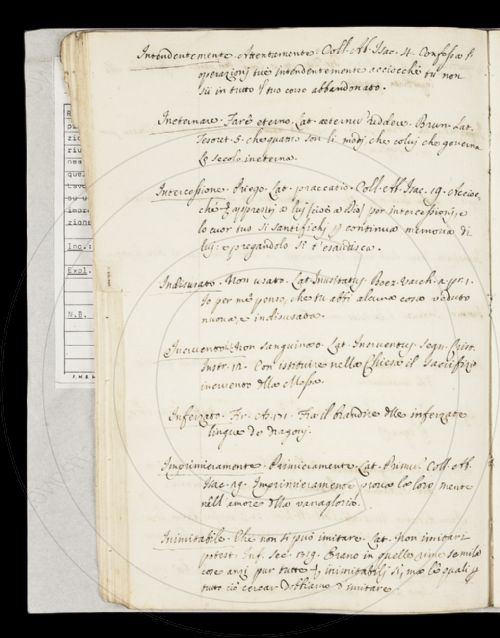 Intendentemente. Attentamente. Coll. Ab. Isac. 4. Confessa
operazioni tue intendentemente acciocchè tu non
sii in tutto tuo corso abbandonato.
Ineternare. Fare eterno. Lat. Brun. Lat.
Tesoret. 5. che quatro son li modi che colui che governa
Lo secolo ineterna.
Intercessione. Priego. Lat. praecatio. Coll. Ab. Isac. 19. Accioc-
chè appresti a lui (cioè a Dio) per intercessioni, e
lo cuor tuo si santifichi continua memoria di
lui: e pregandolo si t'esaudisca.
Indisusato. Non usato. Lat. Inusitatus. Boez. Varch. 2. pr. 1.
Io per me penso, che tu abbi alcuna cosa veduto
nuova, e indisusata.
Incruento. Non sanguinoso. Lat. Incruentus. Segn. Crist.
Instr. 12. Con istituire nella Chiesa il sacrifizio
incruento della Messa.
Inferzato. Fr. 171. Fra il brandire delle inferzate
lingue de dragoni.
Imprimieramente. Primieramente. Lat. Primu. Coll. Ab.
Isac. 19. Imprimieramente la loro mente
nell'amore della vanagloria.
Inimitabile. Che non si può imitare. Lat. Non imitari
potest. Inf. Sec. 1319. Erano in quelle rime semila
cose anzi pur tutte inimitabili sì, ma le quali
tutto ciò cercar dobbiamo d'imitare.
Inc.:
Expl.
N.B.